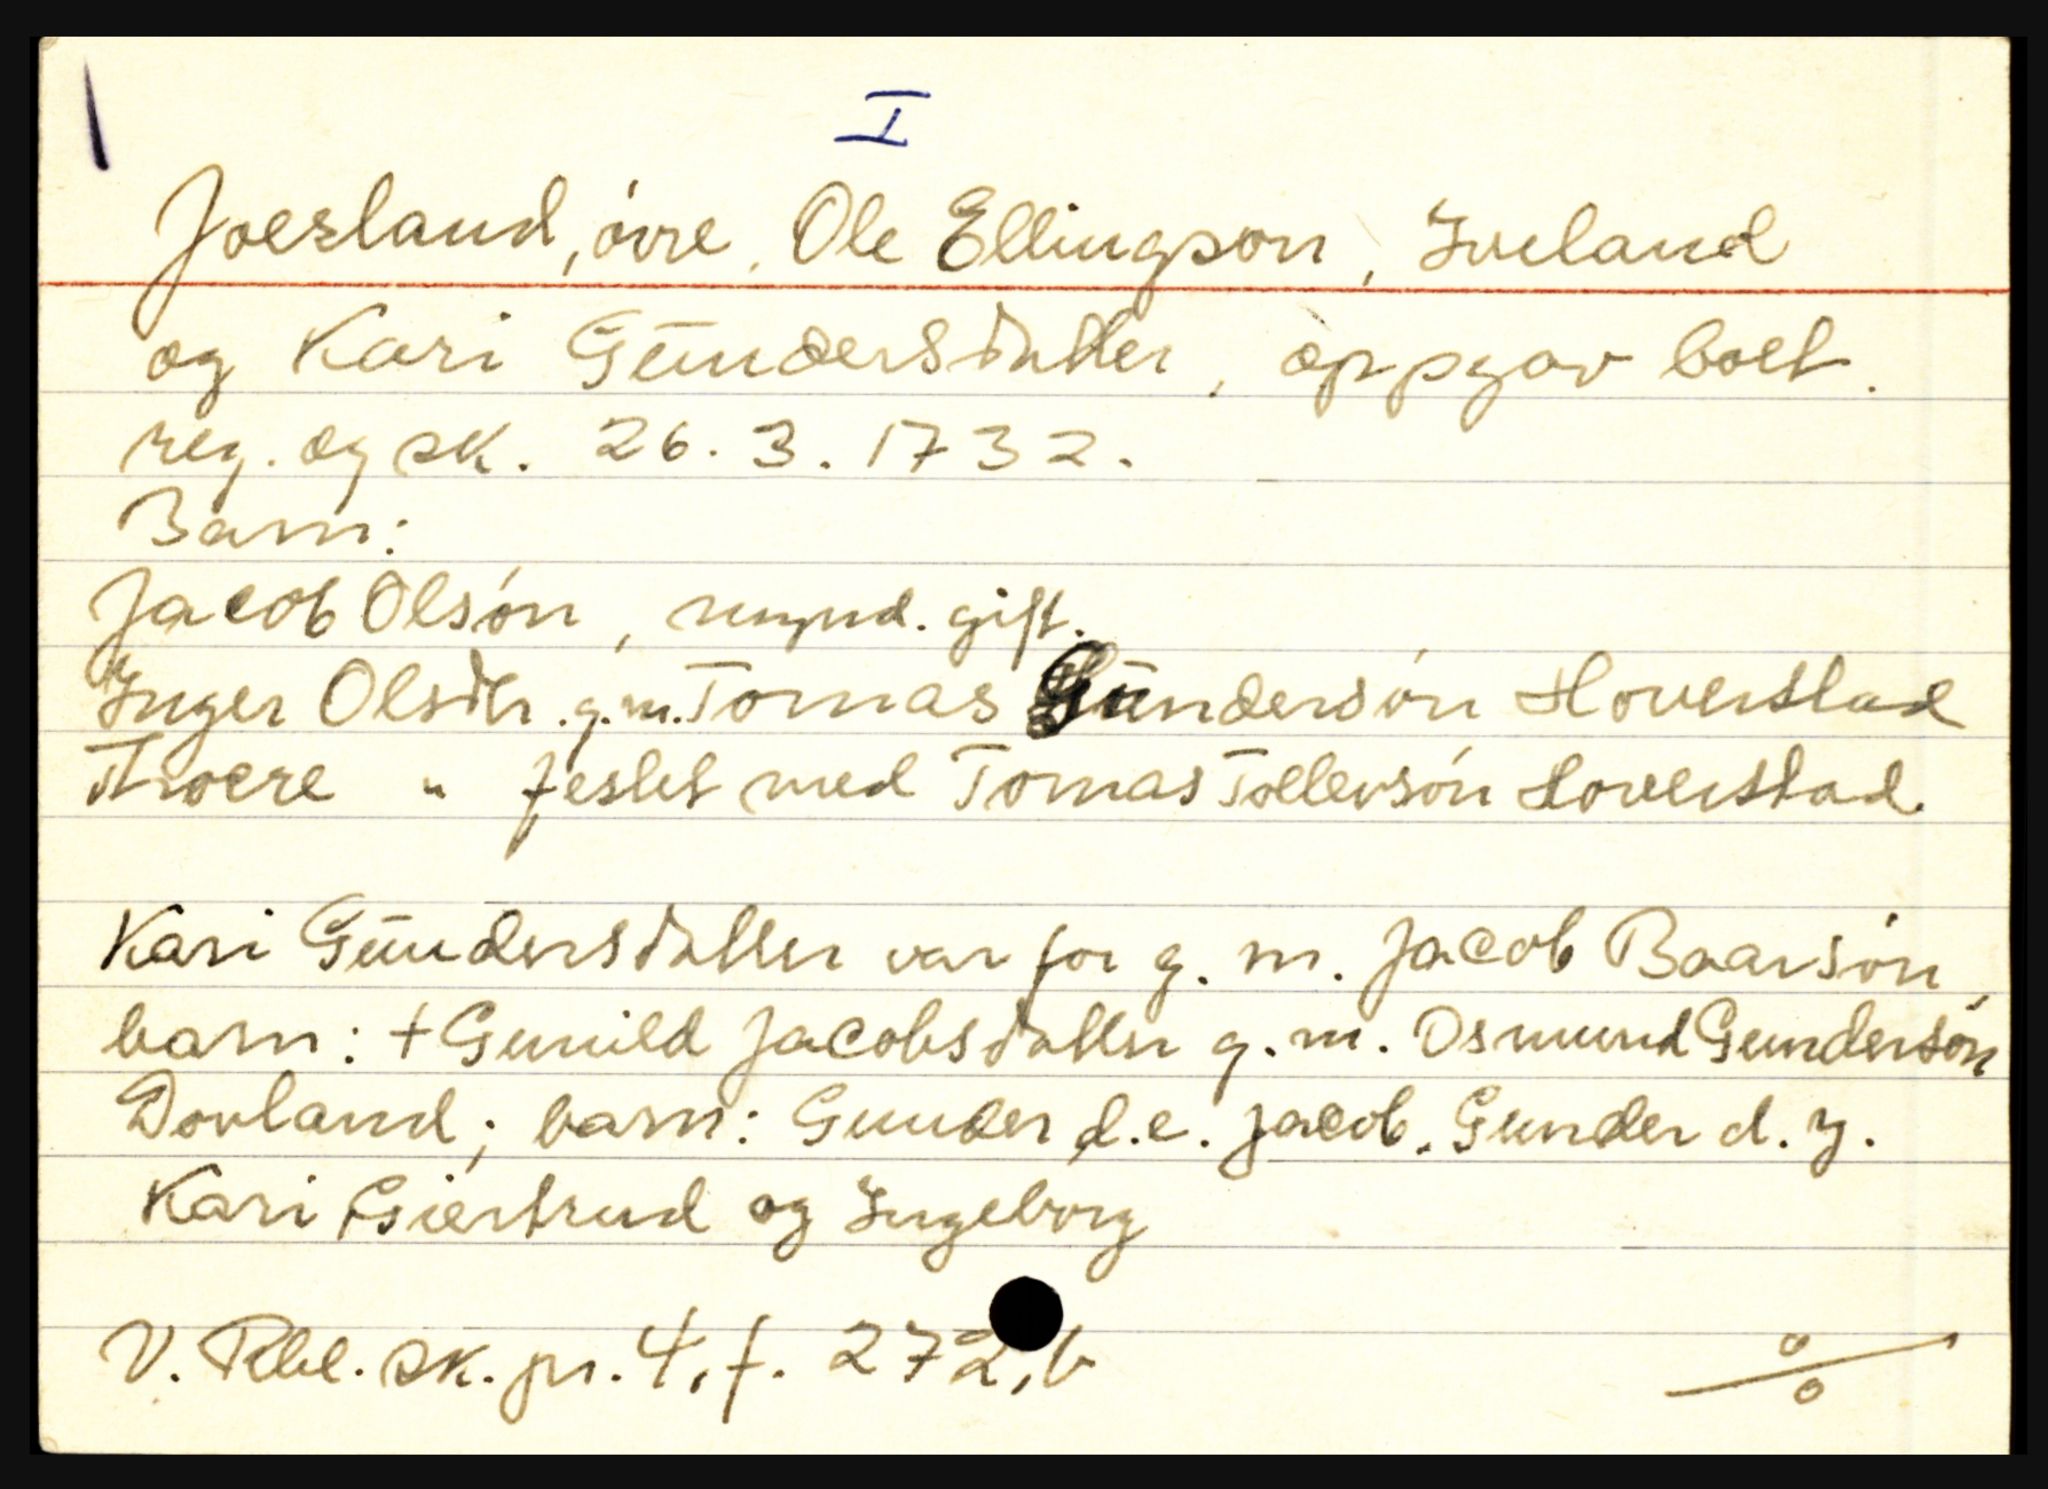 I
Joesland, övre, Ole Ellingsøn, Iveland
og Kari Gündersdatter, oppgav boet.
reg. og sk. 26. 3. 1732.
Barn:
Jacob Olsön, mynd. gift.
Inger Olsdtr. g.m. Tomas Gündersön Hoverstad
" festet med Tomas Tollevsön Hoverstad.
Kari Gündersdatter var för g. m. Jacob Baarsön,
barn: + Gunild Jacobsdatter g. m. Osmund Gundersön
Dovland; barn: Gunder d.e. Jacob. Gunder d. y.
Kari Giertrud og Ingeborg
V. Rbl. sk. pr. 4, f. 272,b
%